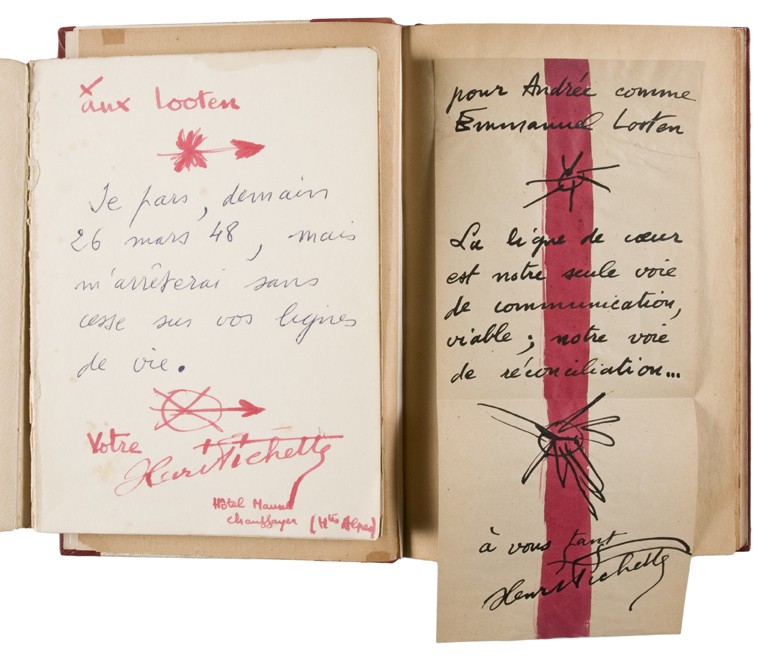 aux Looten
Je pars, demain
26 mars 48, mais
m'arrêterai sans
cesse sur vos lignes
de vie.
Votre
Henri Pichette
Hôtel
Chauffayer (Htes Alpes)
pour Andrée comme
Emmanuel Looten
La ligne de cœur
est notre seule voie
de communication,
viable ; notre voie
de réconciliation...
à vous tant
Henri Pichette